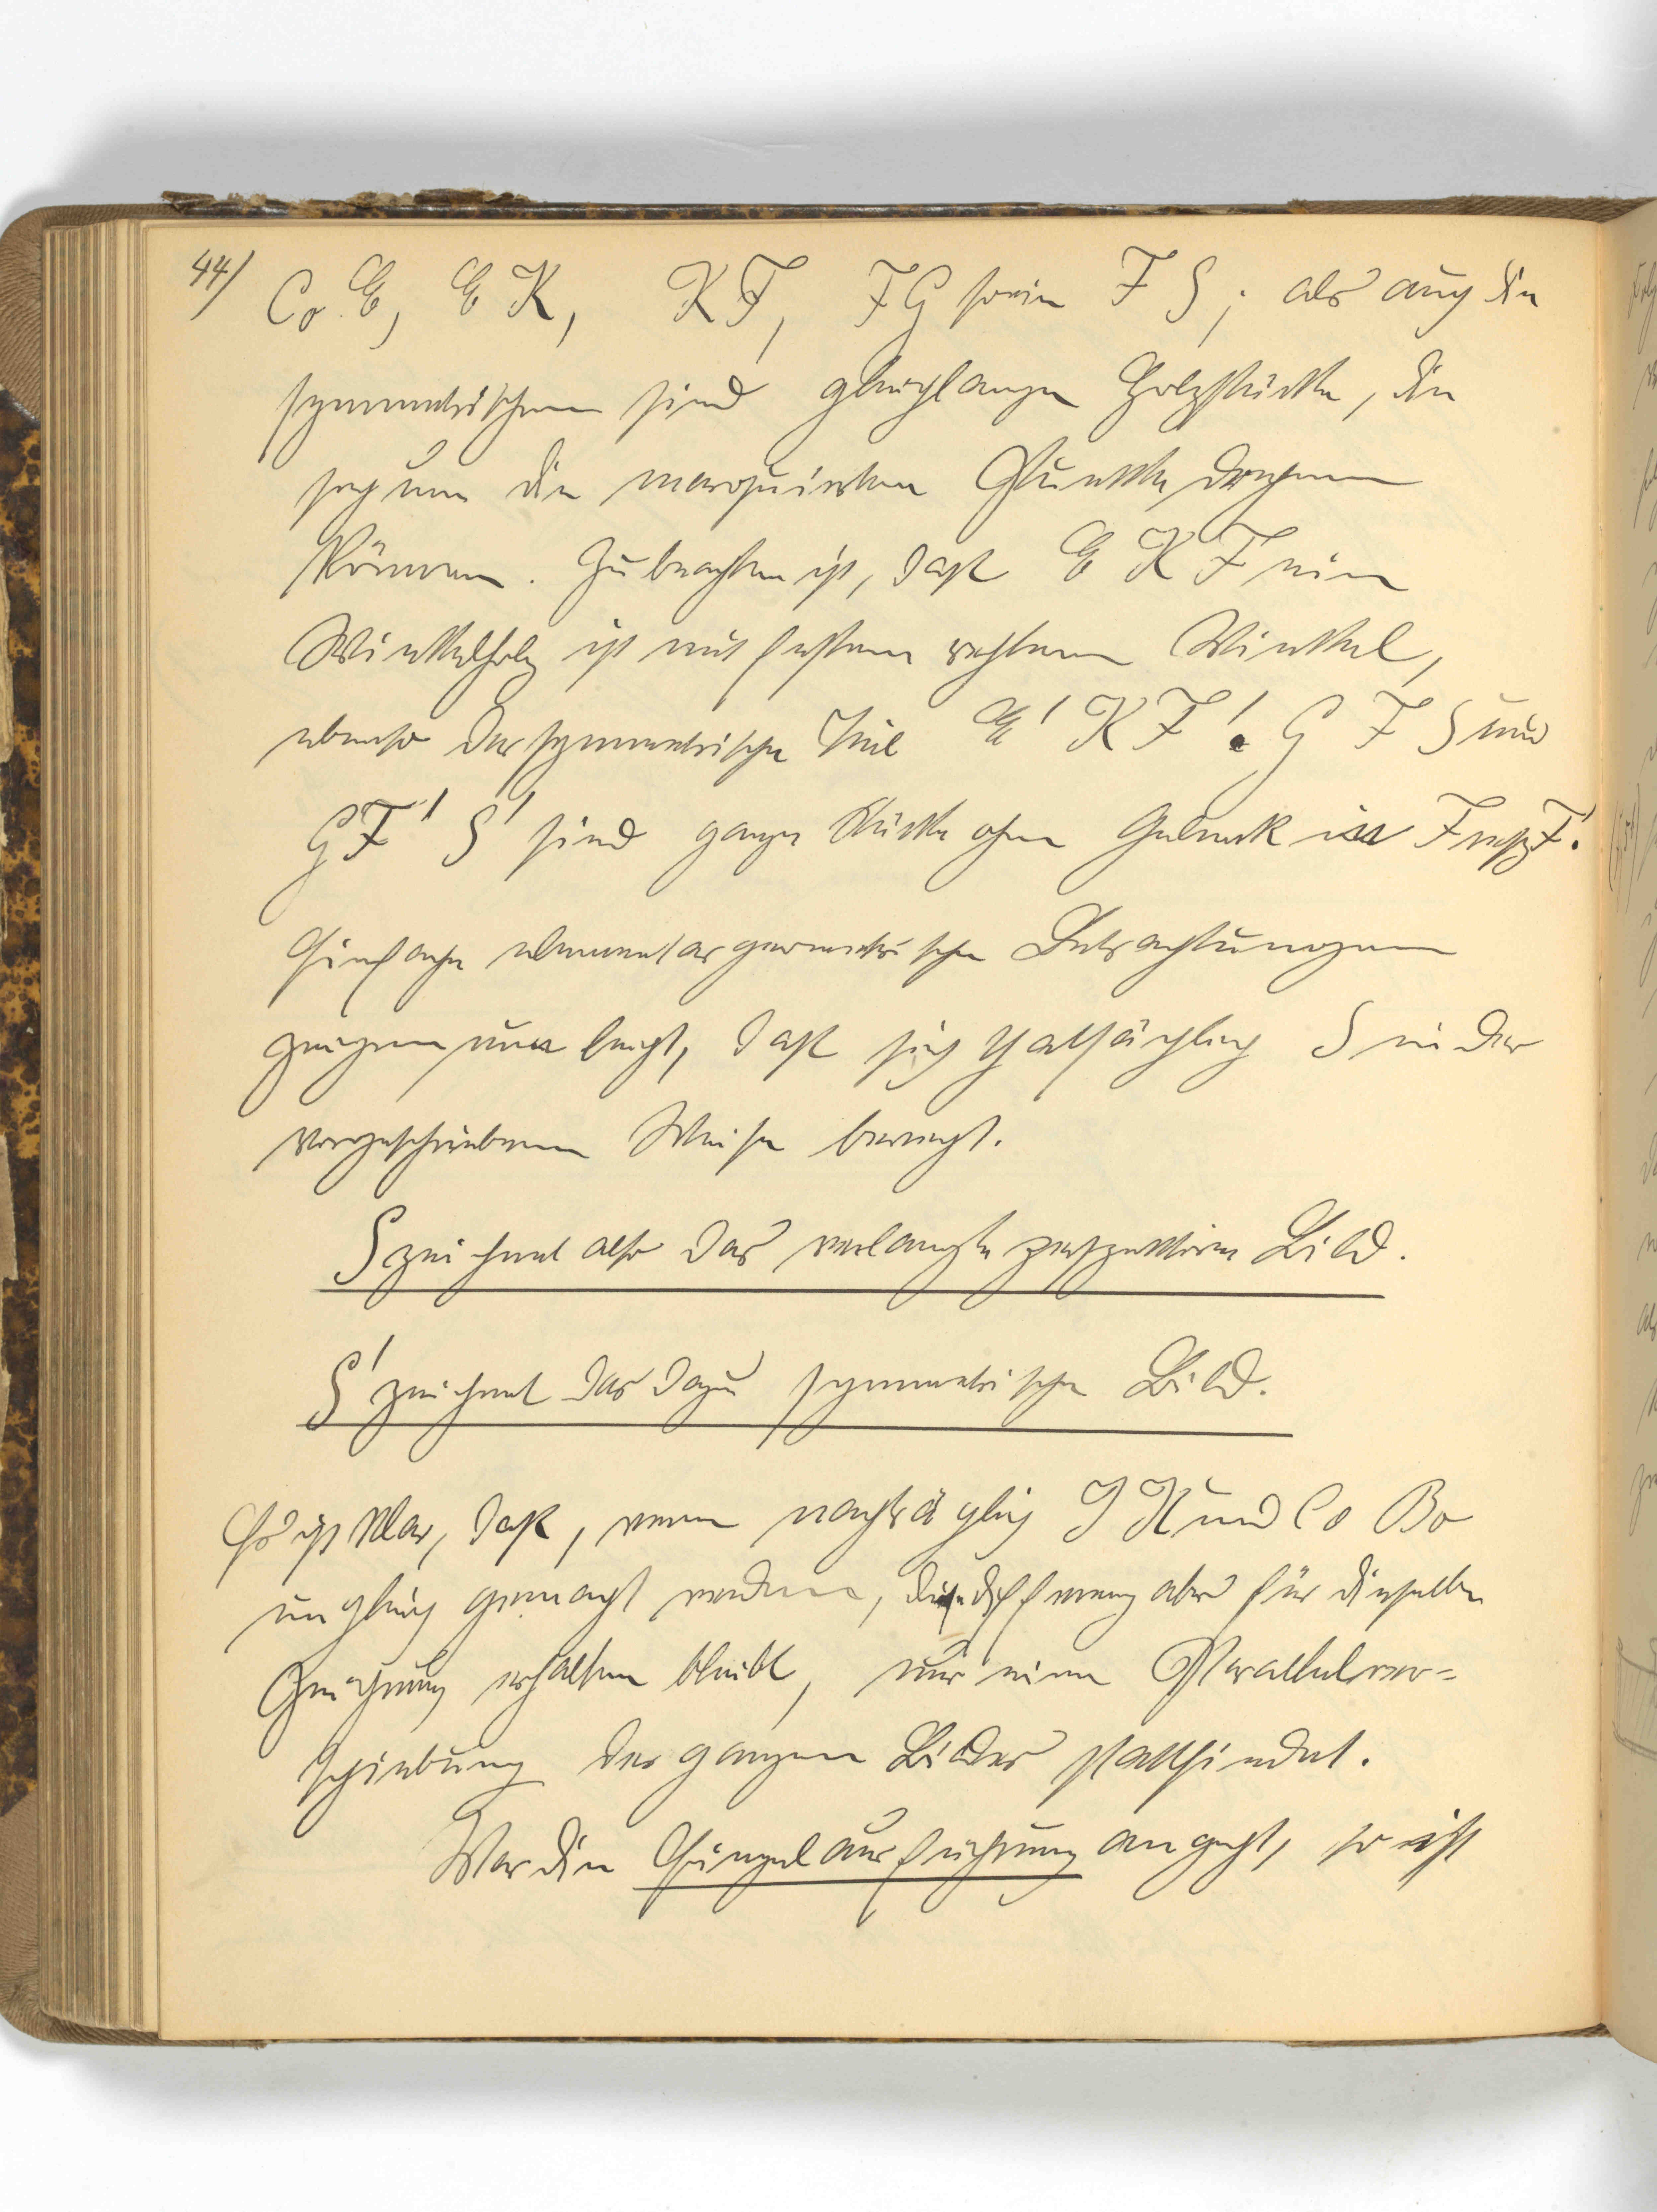 44/ Co E, E K, K F, F G sowie F S; als auch die
symmetrischen sind gleichlange Holzstücke, die
sich um die marquierten Punkte drehen
können. Zu beachten ist, daß E K F ein
Winkelholz ist mit festem rechtem Winkel,
ebenso der symmetrische Teil E' K F'. G F S und
G F' S' sind ganze Stücke ohne Gelenk in F resp F'.
Einfache elementargeometrische Betrachtungen
zeigen nun leicht, daß sich thatsächlich S in der
vorgeschriebenen Weise bewegt.
S zeichnet also das verlangte perspektive Bild.
S' zeichnet das dazu symmetrische Bild.
Es ist klar, daß, wenn nachträglich J K und Co Bo
ungleich gemacht werden, die Differenz aber für dieselbe
Zeichnung erhalten bleibt, nur eine Parallelver-
schiebung des ganzen Bildes stattfindet.
Was die Einzelausführung angeht, so ist